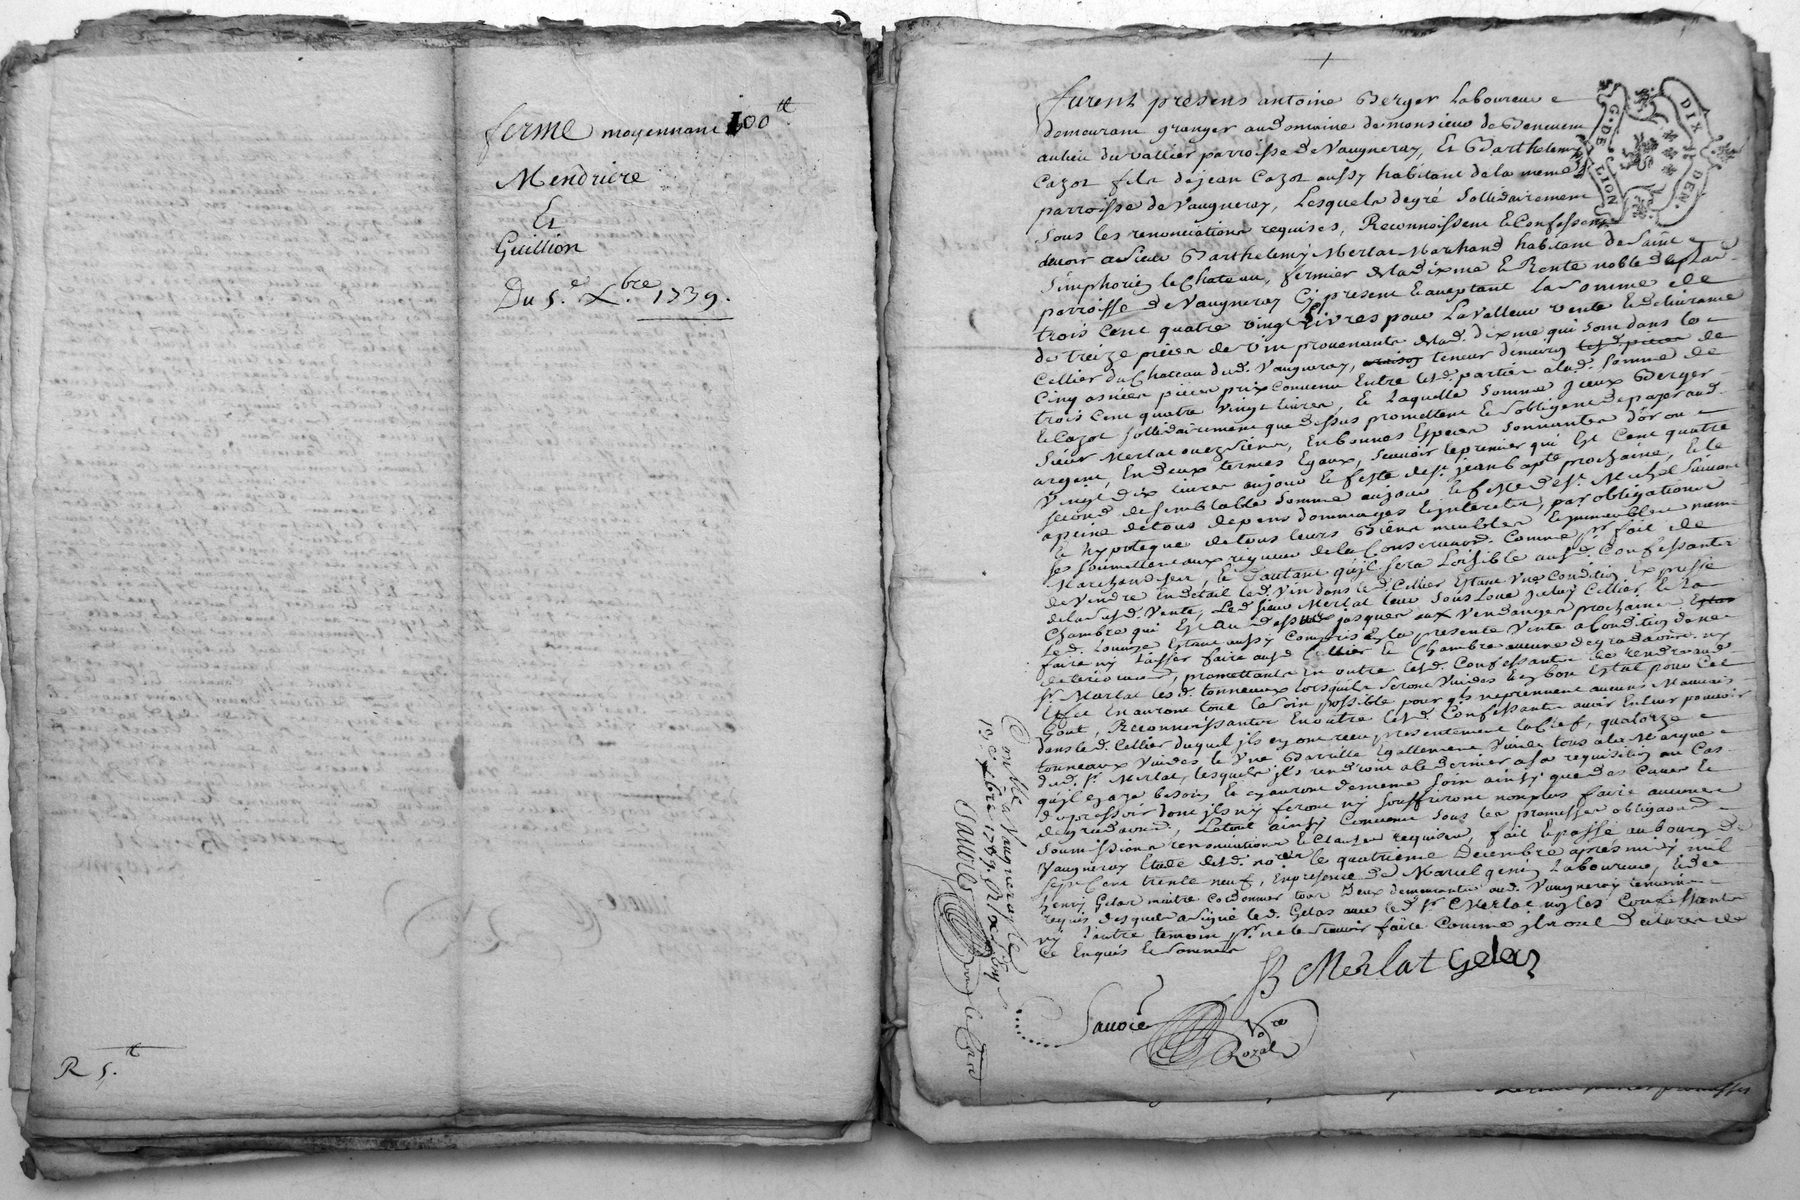 ferme moyennant 100tt
Mendriere
Et
Guillion
Du 5.e Xbre 1739.
R 5.tt
G. DE LION
DIX DEN.
furent presens antoine Berger Laboureur
demeurant granger audomaine de monsieur de
aulieu du vallier parroisse de Vaugneray, Et Barthelemy
Cazot fils de jean Cazot aussy habitant de la meme
parroisse de Vaugneray, Lesquels de gré sollidairement
sous les renonciations requises, Reconnoissent & Confessent
devoir a sieur Barthelemy Merlat Marchand habitant de Saint
Simphorien le Chateau, fermier de la dixme & Rente noble de
parroisse de Vaugneray Cy present & aceptant la somme de
trois cent quatre vingt Livres pour la valleur vente & delivrance
de treize pieces de vin provenants de lad. dixme qui sont dans le
Cellier du Chateau dud. Vaugneray, teneur d'environ de
Cinq asnées piece prix convenu Entre lesd. parties a lad. somme de
trois cent quatre vingt livres, & laquelle somme jceux Berger
& Cazot sollidairement que dessus promettent & s'obligent de payer aud.
sieur Merlat ou es siens, En bonnes Especes sonnantes d'or ou
argent, En deux termes Egaux, scavoir le premier qui Est Cent quatre
Vingt dix livres au jour & feste de st. jean bapte prochaine, & le
second de semblable somme au jour & feste de st. Michel suivant
a peine de tous depens dommages & interets, par obligation
& hypoteque de tous leurs Biens meubles & immeubles
se soumettant aux rigueurs de la Conservaon. Comme pr. fait de
Marchandises, & d'autant qu'il sera Loisible ausd. Confessants
de vendre En detail led. vin dans led. Cellier Estant Une Condition Expresse
de la susd. Vente, Led. sieur Merlat leur sous loue jceluy Cellier & la
Chambre qui Est au dessus jusques aux Vendanges prochaines
Led. Louage Estant aussy Compris En la presente Vente a Condition de ne
faire ny laisser faire aud. Cellier & Chambre aucune degradation ny
deterioration, promettants En outre lesd. Confessants de rendre aud.
sr. Merlat lesd. tonneaux lorsquils seront Vuides & en bon Estat pour cet
Effet En auront tout le soin possible pour qls ne prennent aucuns Mauvais
Gout, Reconnoissants En outre lesd. Confessants avoir En leur pouvoir
dans led. Cellier duquel jls en ont receu presentement la Clef, quatorze
tonneaux Vuides & Une Barrille Egallement Vuide tous a la Marque
dud. sr. Merlat, lesquels jls rendront a ce dernier a sa requisition au Cas
qu'il en aye besoin & en auront de meme soin ainsy que des Cuves &
du pressoir dont jls n'y feront ny souffriront non plus faire aucune
degradation, Latout ainsy Convenu sous les promesses obligaons
soumissions renonciations & Clauses requises, fait & passé au bourg de
Vaugneray Etude dud. nore. le quatrieme Decembre apres midy mil
sept Cent trente neuf, En presence de Laboureur, & de
henry Gelas maitre Cordonnier tous deux demeurants aud. Vaugneray temoins
requis desquels a signé led. Gelas avec led. sr. Merlat non les Confessants
ny l'autre temoin pr. ne le scavoir faire Comme jls ont declaré de
ce Enquis & sommés
B Merlat Gelas
Sauoie
Nre
Royal
Conllé a Vaugneray le
13. Xbre 1739. R/
Sauoie